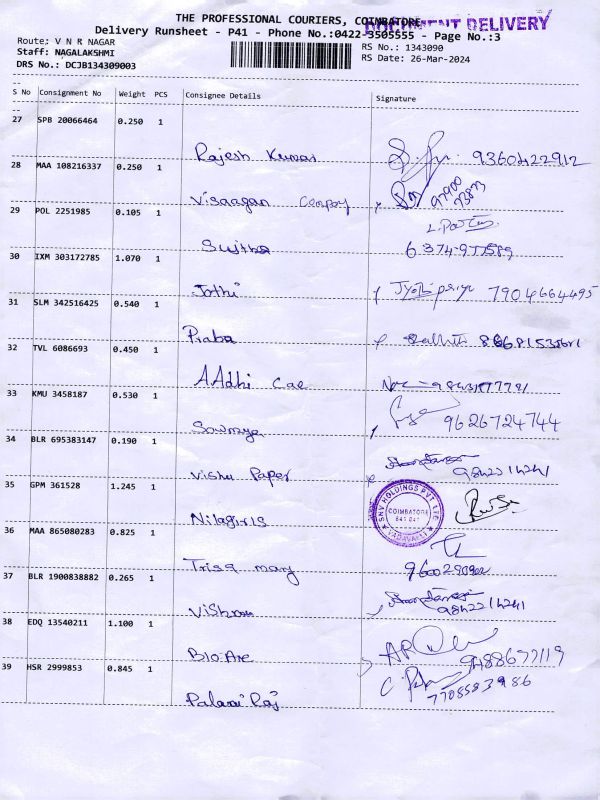 THE PROFESSIONAL COURIERS, COIMBATORE
DELIVERY
Delivery Runsheet - P41 - Phone No.:0422-3505555 - Page No.:3
Route: V N R NAGAR
Staff: NAGALAKSHMI
DRS No.: DCJB134309003
RS No.: 1343090
RS Date: 26-Mar-2024
S No Consignment No Weight PCS Consignee Details Signature
27 SPB 20066464 0.250 1
Rajesh Kumar 9360422912
28 MAA 108216337 0.250 1
Visaagan Company 97900 73873
29 POL 2251985 0.105 1
Sujitha
30 IXM 303172785 1.070 1
Jothi Jyothipriya 7904664495
31 SLM 342516425 0.540 1
Praba
32 TVL 6086693 0.450 1
AAdhi Cae
33 KMU 3458187 0.530 1
Sowmya 9626724744
34 BLR 695383147 0.190 1
Vishu Paper 9842214241
35 GPM 361528 1.245 1
Nilagiris
SNV HOLDINGS PVT. LTD.
COIMBATORE
641 041
VADAVALLI
36 MAA 865080283 0.825 1
Trisa mary
37 BLR 1900838882 0.265 1
Vishnu 9842214241
38 EDQ 13540211 1.100 1
Bio Are 9488677119
39 HSR 2999853 0.845 1
Palani Raj 7708583986